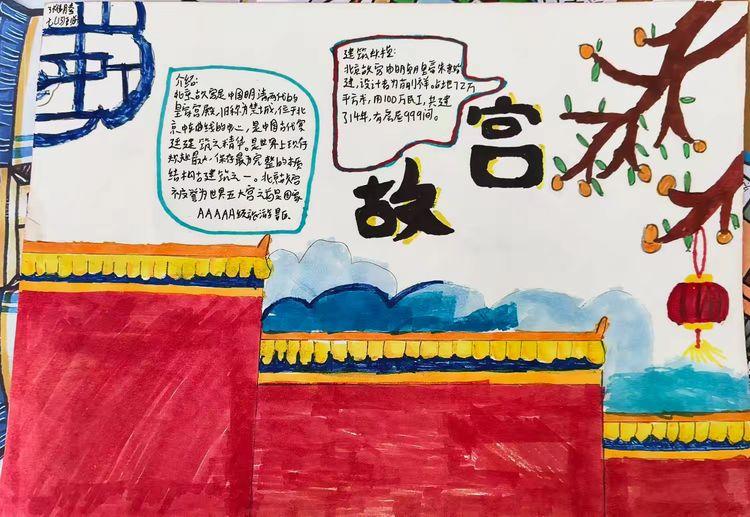 介绍:
北京故宫是中国明清两代的
皇家宫殿,旧称为紫禁城,位于北
京中轴线的中心,是中国古代宫
廷建筑之精华。是世界上现存
规模最大,保存最为完整的木质
结构古建筑之一。北京故宫
被誉为世界五大宫之首是国家
AAAAA级旅游景区
建筑规模:
北京故宫由明朝皇帝朱棣始
建,设计者为蒯祥。占地72万
平方米,用100万民工,共建
了14年,有房屋999间。
故宫